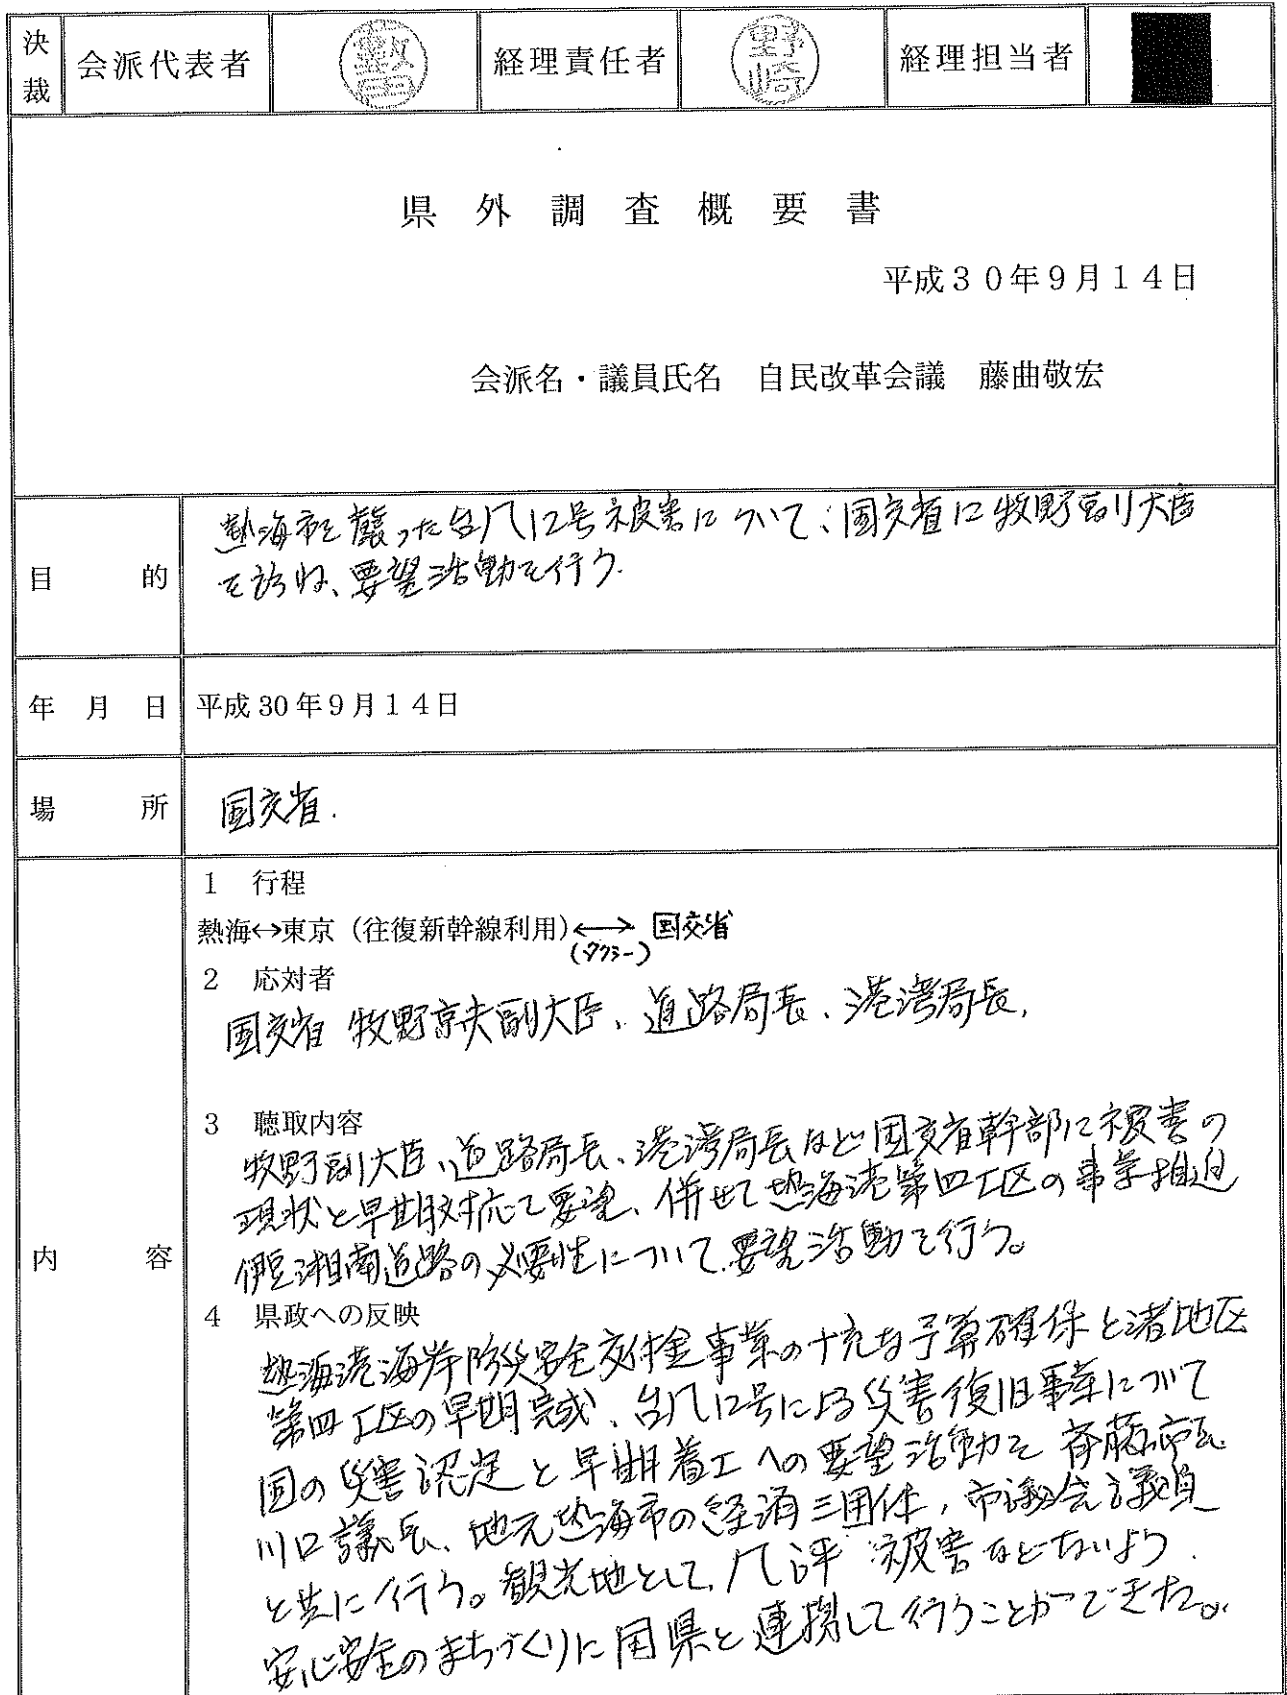 決裁 会派代表者 經理責任者 野崎 経理担当者
県外調査概要書
平成30年9月14日
会派名・議員氏名 自民改革会議 藤曲敬宏
目的
熱海市を襲った台风12号被害について、国交省に牧野副大臣
を訪ね、要望活動を行う.
年月日 平成30年9月14日
場所 国交省.
内容
1 行程
熱海↔東京(往復新幹線利用)⟷国交省
(タクシー)
2 応対者
国交省 牧野京夫副大臣、道路局長、港湾局長,
3 聴取内容
牧野副大臣、道路局長、港湾局長など国交省幹部に被害の
現状と早期対応を要望、併せて熱海港第四工区の事業推進
伊豆湘南道路の必要性について要望活動を行う。
4 県政への反映
熱海港海岸防災安全交付金事業の十充な予算確保と渚地区
第四工区の早期完成、台风12号による災害復旧事業について
国の災害認定と早期着工への要望活動を斉藤市長
川口議長、地元熱海市の経済三団体,市議会議員
と共に行う。観光地として,风評被害などないよう.
安心安全のまちづくりに国県と連携して行うことができた。